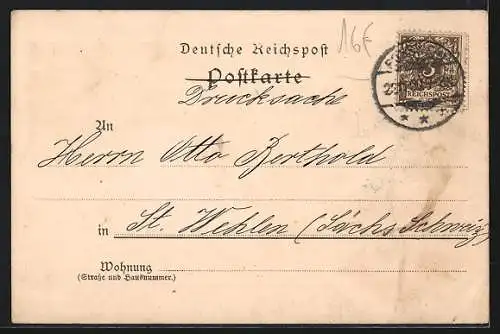 16€
Deutsche Reichspost
Postkarte
Drucksache
3
REICHSPOST
An
Herrn Otto Berthold
in St. Wehlen (Sächs. Schweiz)
Wohnung
(Straße und Hausnummer.)